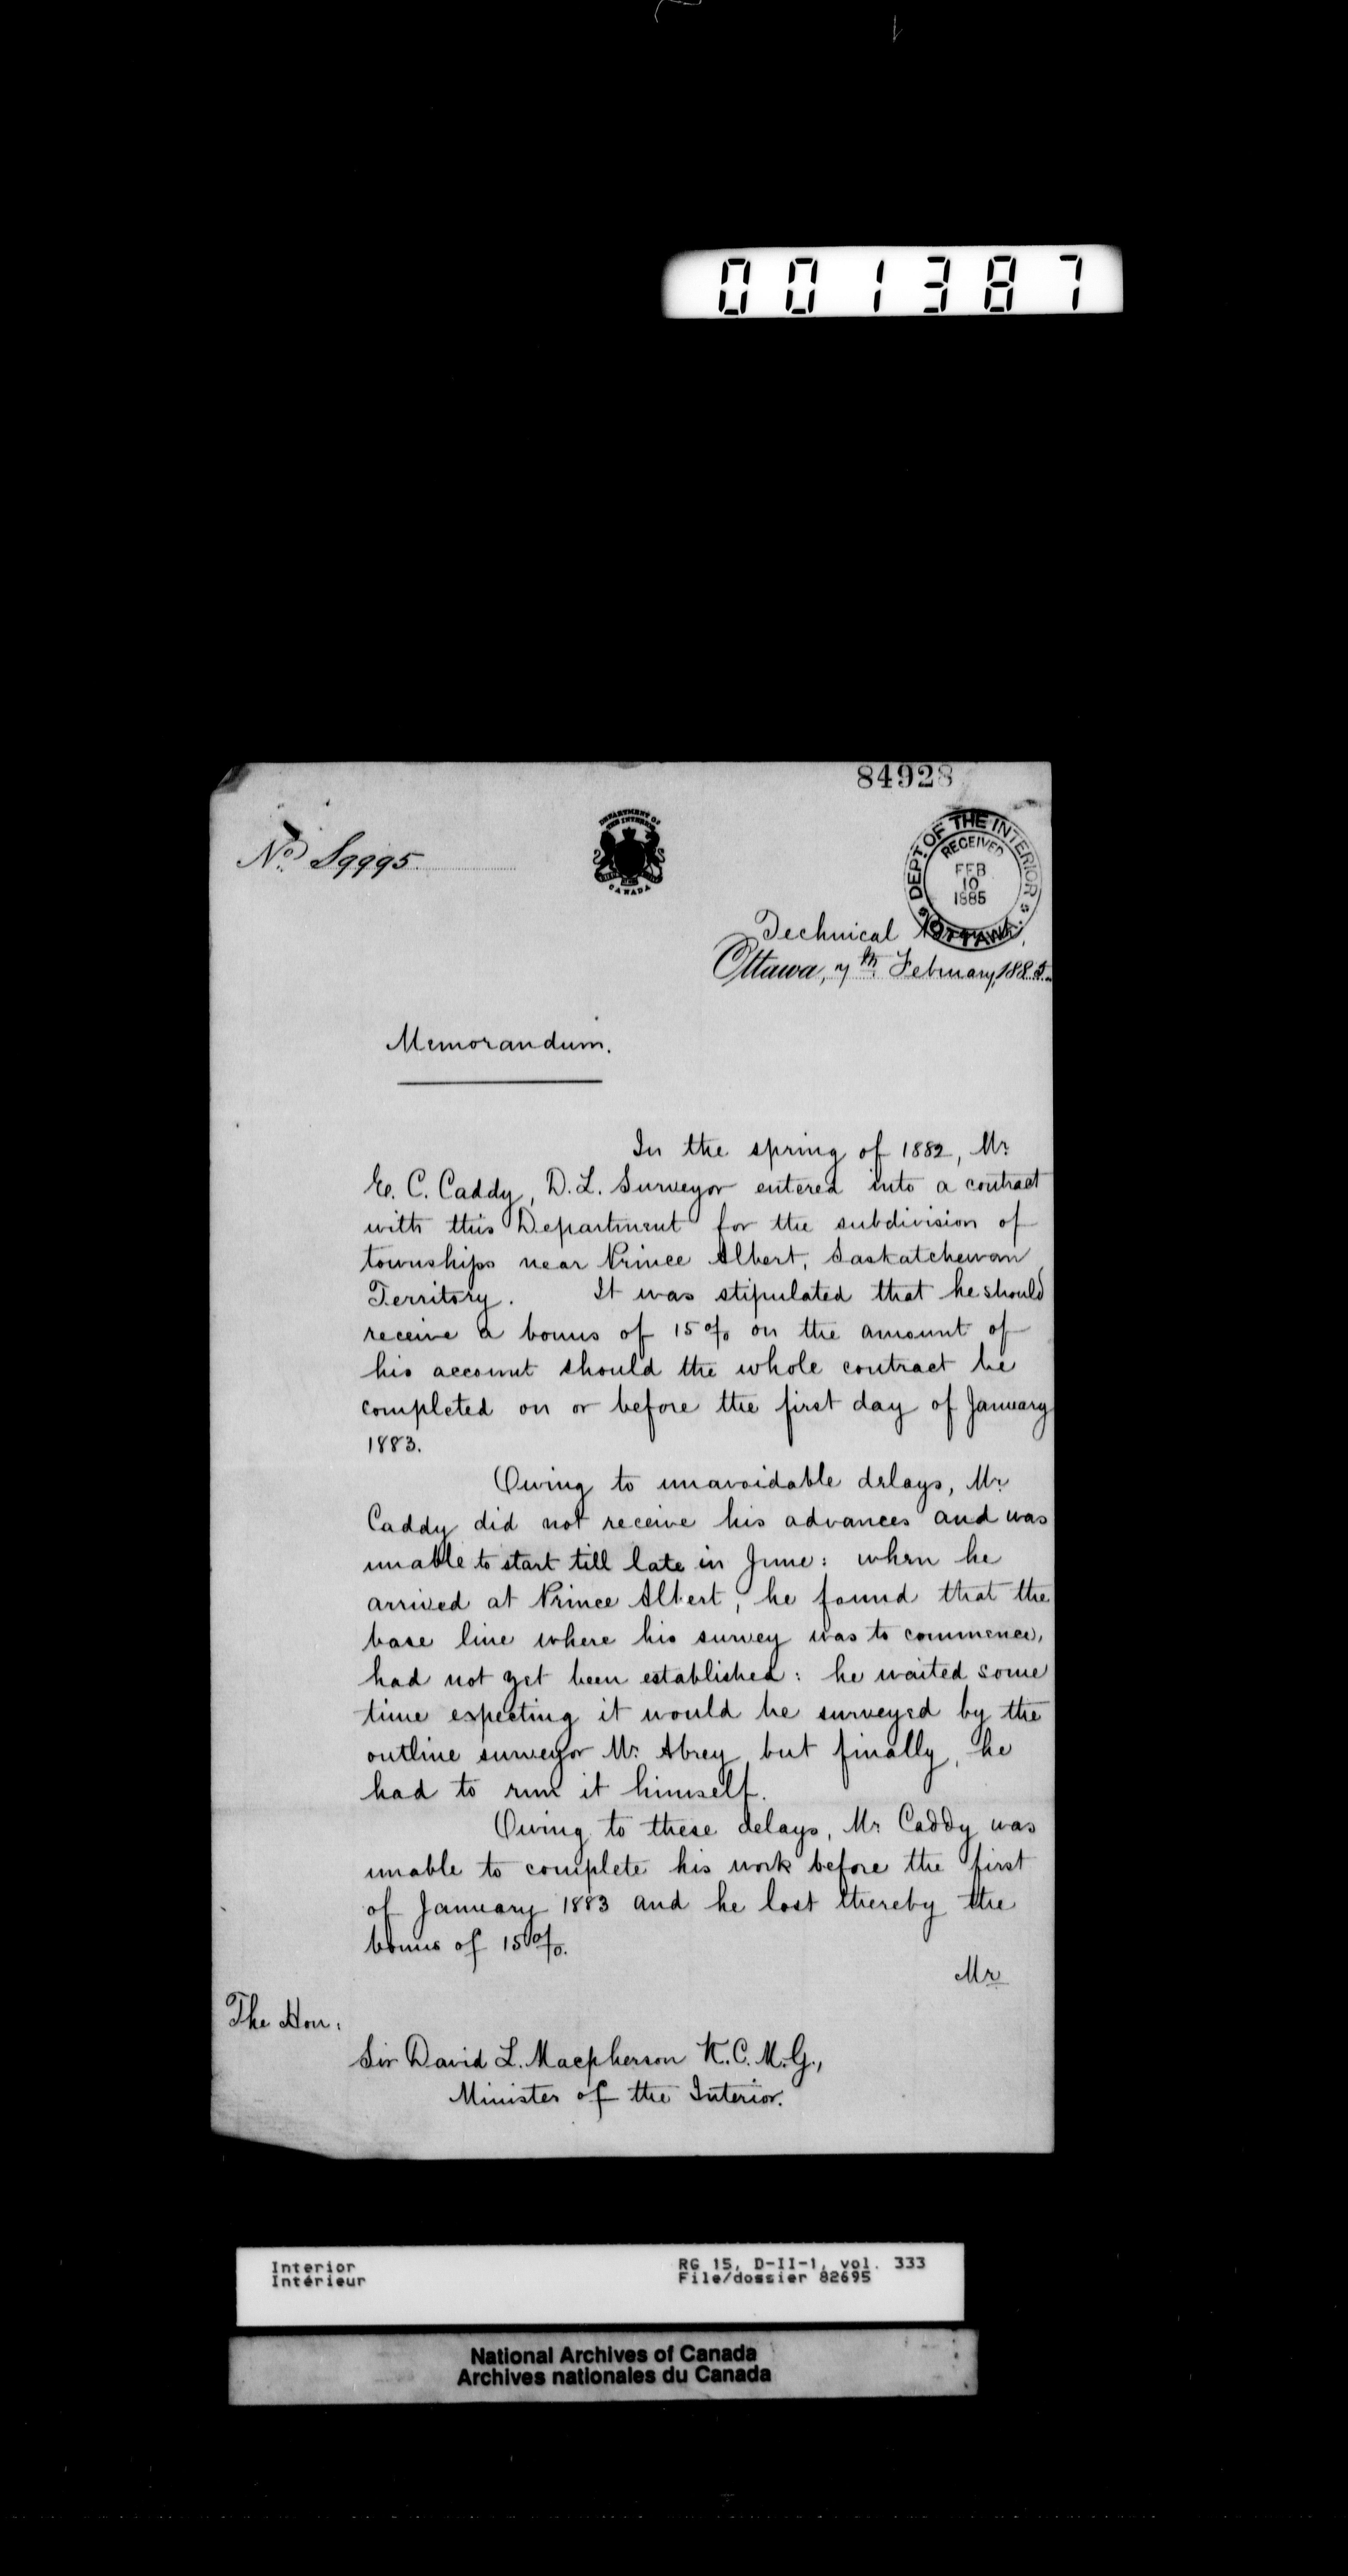 001387
84928
No. S9995
DEPARTMENT OF
THE INTERIOR
CANADA
DEPT. OF THE INTERIOR
RECEIVED
FEB
10
1885
OTTAWA.
Technical
Ottawa, 7th February, 1885.
Memorandum.
In the spring of 1882, Mr
E. C. Caddy, D. L. Surveyor entered into a contract
with this Department for the subdivision of
townships near Prince Albert, Saskatchewan
Territory. It was stipulated that he should
receive a bonus of 15% on the amount of
his account should the whole contract be
completed on or before the first day of January
1883.
Owing to unavoidable delays, Mr
Caddy did not receive his advances and was
unable to start till late in June: when he
arrived at Prince Albert, he found that the
base line where his survey was to commence,
had not yet been established: he waited some
time expecting it would be surveyed by the
outline surveyor Mr. Abrey but finally, he
had to run it himself.
Owing to these delays, Mr Caddy was
unable to complete his work before the first
of January 1883 and he lost thereby the
bonus of 15%.
Mr
The Hon:
Sir David L. Macpherson K.C.M.G.,
Minister of the Interior.
Interior RG 15, D-II-1, vol. 333
Intérieur File/dossier 82695
National Archives of Canada
Archives nationales du Canada